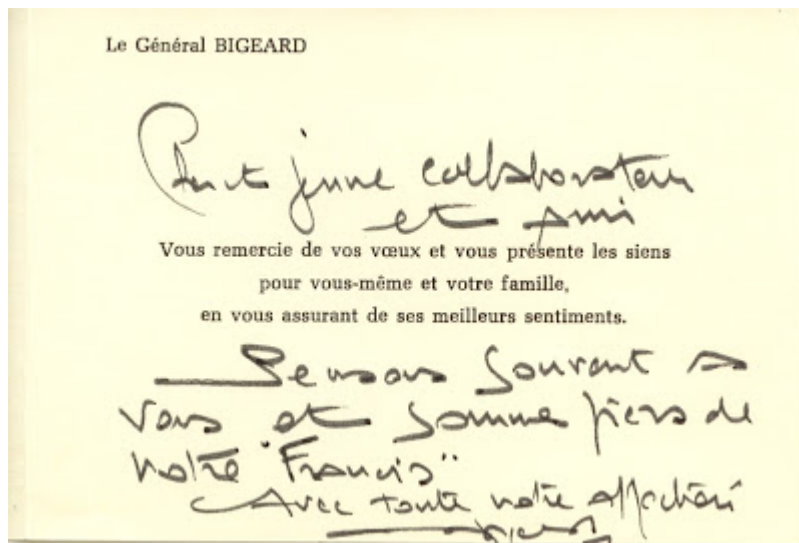 Le Général BIGEARD
jeune collaborateur
et ami
Vous remercie de vos vœux et vous présente les siens
pour vous-même et votre famille,
en vous assurant de ses meilleurs sentiments.
Pensons souvent à
vous et somme fiers de
notre "Francis"
Avec toute notre affection